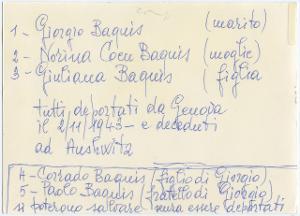 1 - Giorgio Baquis (marito)
2 - Norina Coen Baquis (moglie)
3 - Giuliana Baquis (figlia
tutti deportati da Genova
il 2/11/1943 - e deceduti
ad Auswitz
4 - Corrado Baquis (figlio di Giorgio)
5 - Paolo Baquis (fratello di Giorgio)
si poterono salvare senza essere deportati